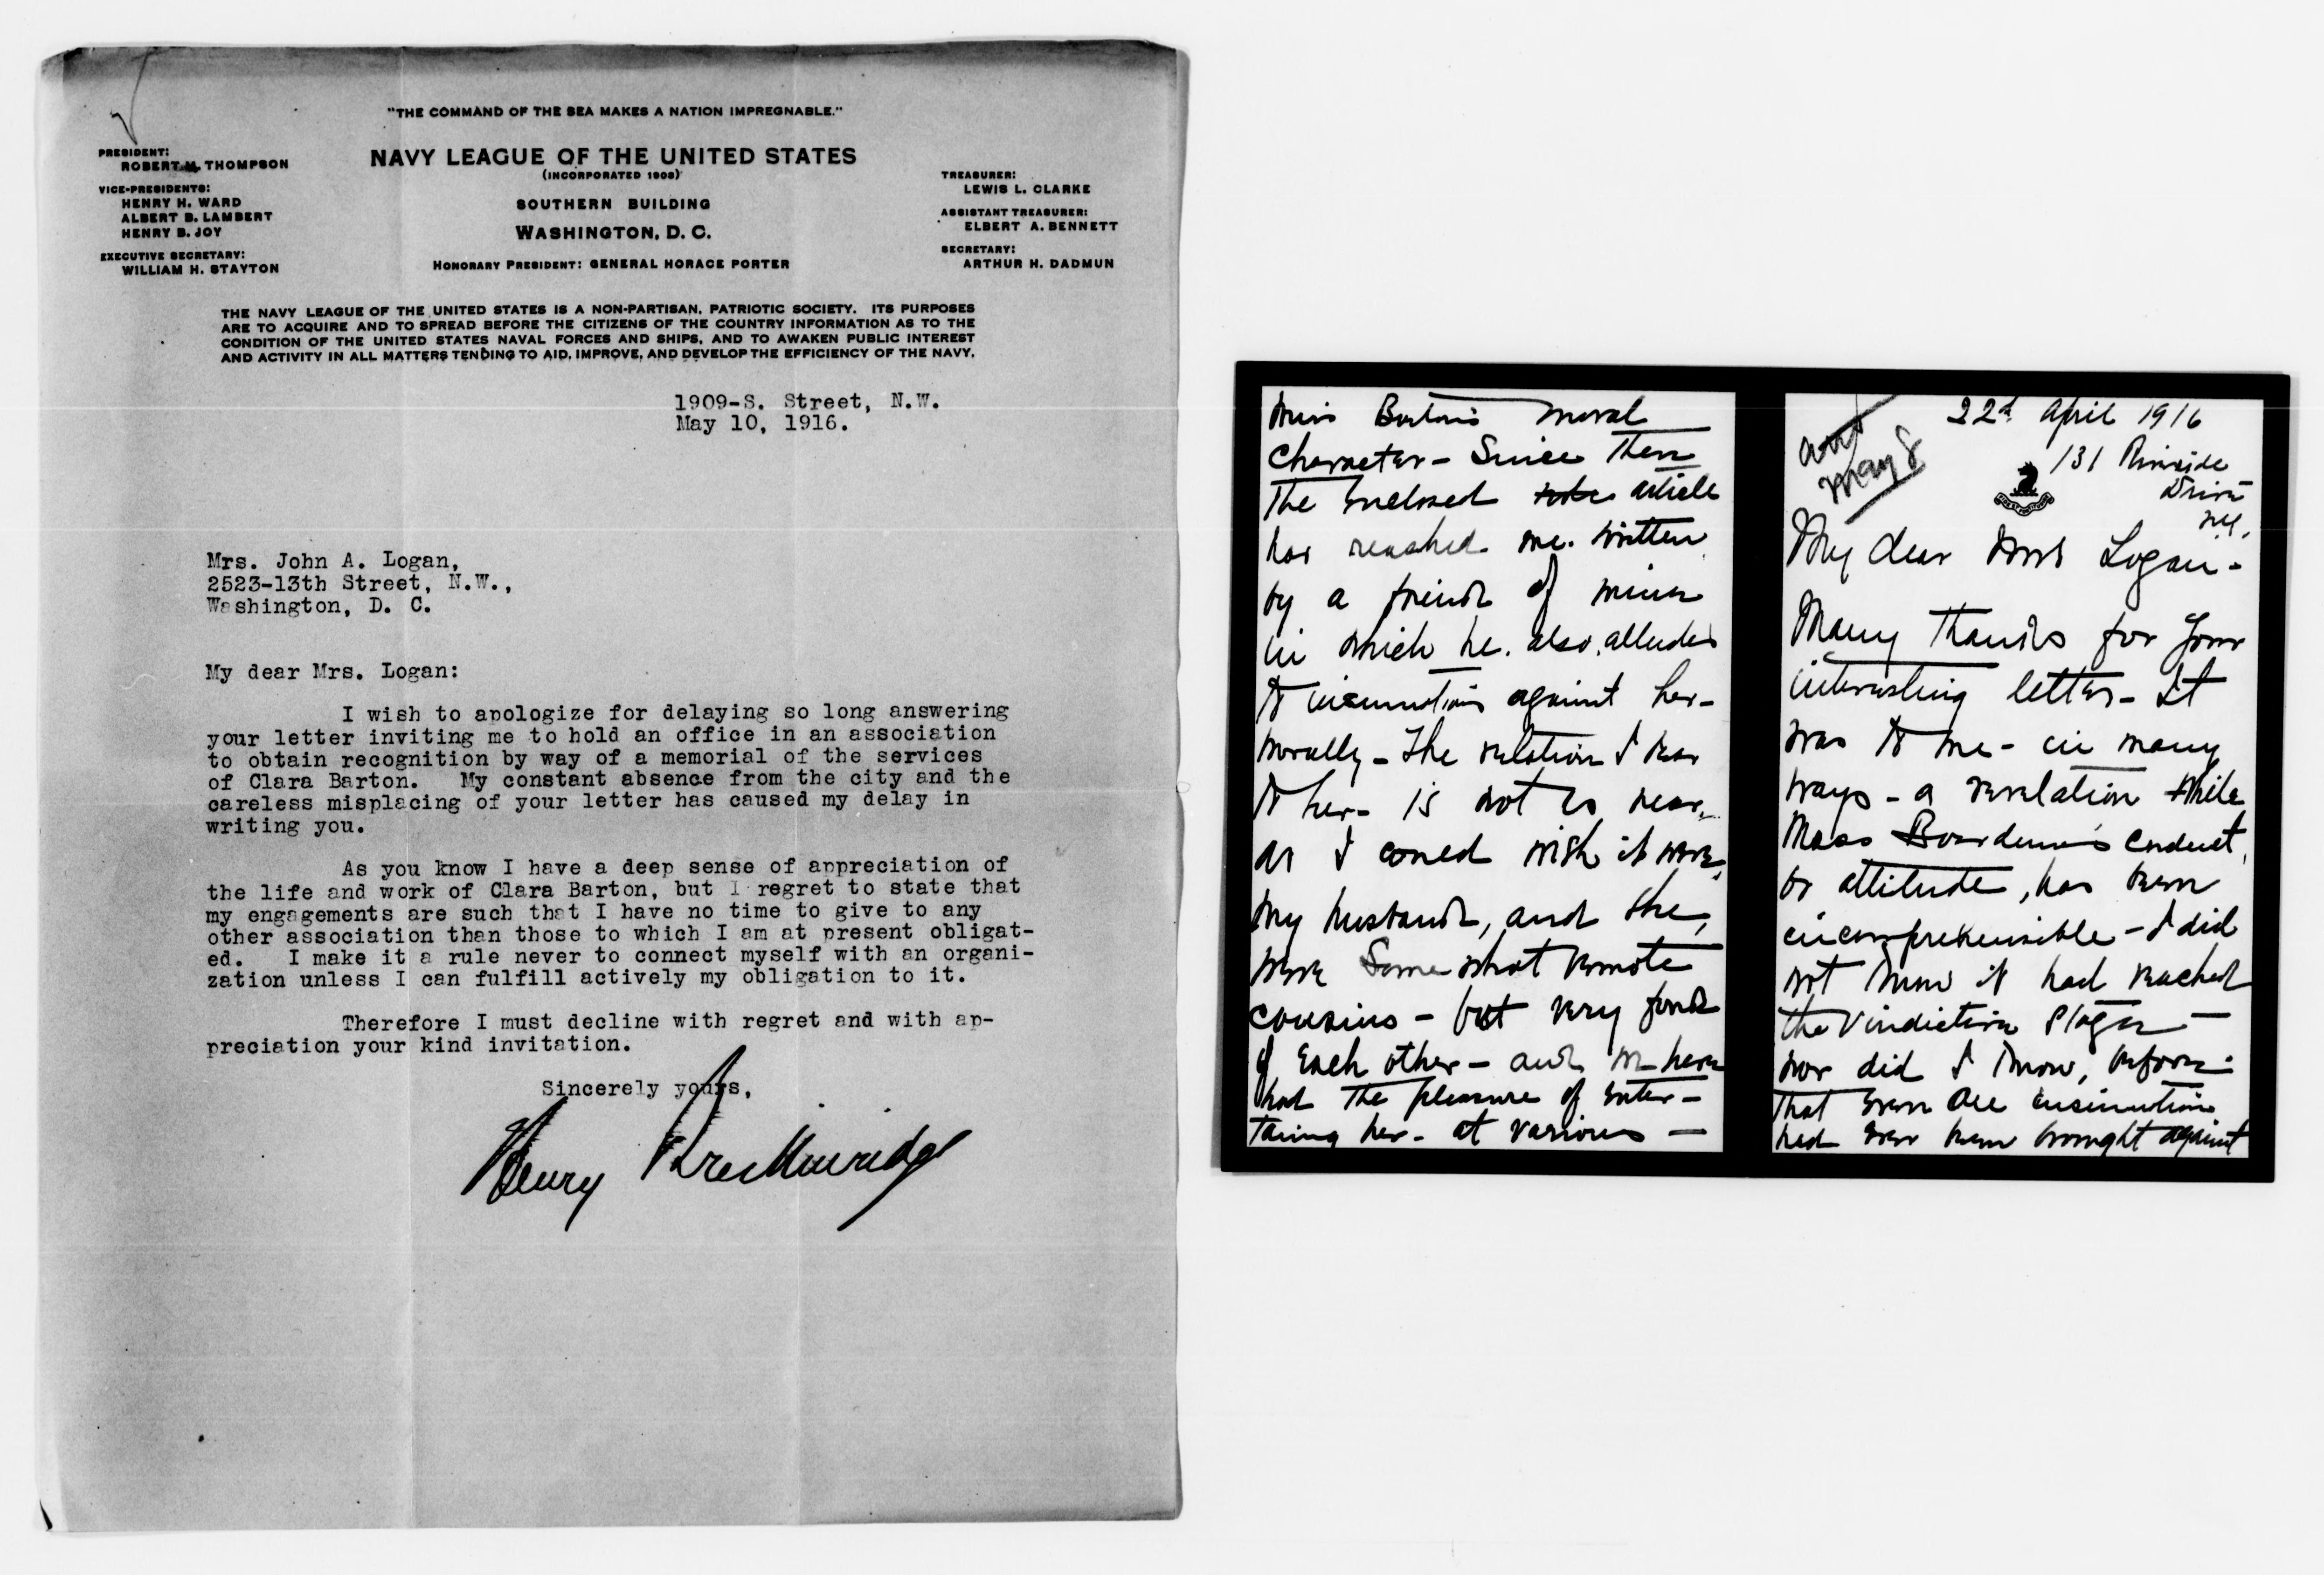 "THE COMMAND OF THE SEA MAKES A NATION IMPREGNABLE."
PRESIDENT:
ROBERT M. THOMPSON
VICE-PRESIDENTS:
HENRY H. WARD
ALBERT B. LAMBERT
HENRY B. JOY
EXECUTIVE SECRETARY:
WILLIAM H. STAYTON
NAVY LEAGUE OF THE UNITED STATES
(INCORPORATED 1903)
SOUTHERN BUILDING
WASHINGTON, D. C.
HONORARY PRESIDENT: GENERAL HORACE PORTER
TREASURER:
LEWIS L. CLARKE
ASSISTANT TREASURER:
ELBERT A. BENNETT
SECRETARY:
ARTHUR H. DADMUN
THE NAVY LEAGUE OF THE UNITED STATES IS A NON-PARTISAN, PATRIOTIC SOCIETY. ITS PURPOSES
ARE TO ACQUIRE AND TO SPREAD BEFORE THE CITIZENS OF THE COUNTRY INFORMATION AS TO THE
CONDITION OF THE UNITED STATES NAVAL FORCES AND SHIPS, AND TO AWAKEN PUBLIC INTEREST
AND ACTIVITY IN ALL MATTERS TENDING TO AID, IMPROVE, AND DEVELOP THE EFFICIENCY OF THE NAVY.
1909-S. Street, N.W.
May 10, 1916.
Mrs. John A. Logan,
2523-13th Street, N.W.,
Washington, D. C.
My dear Mrs. Logan:
I wish to apologize for delaying so long answering
your letter inviting me to hold an office in an association
to obtain recognition by way of a memorial of the services
of Clara Barton. My constant absence from the city and the
careless misplacing of your letter has caused my delay in
writing you.
As you know I have a deep sense of appreciation of
the life and work of Clara Barton, but I regret to state that
my engagements are such that I have no time to give to any
other association than those to which I am at present obligat-
ed. I make it a rule never to connect myself with an organi-
zation unless I can fulfill actively my obligation to it.
Therefore I must decline with regret and with ap-
preciation your kind invitation.
Sincerely yours,
Henry Breckinridge
22d April 1916
131 Riverside
Drive
N.Y.
ans
May 8
My dear Mrs Logan-
Many thanks for your
interesting letter- It
was to me- in many
ways- a revelation while
Miss Boardman's conduct,
or attitude, has been
incomprehensible- I did
not know it had reached
the vindictive stage-
nor did I know, before-
that even an insinuation
had ever been brought against
Miss Barton's moral
character- Since then
the enclosed article
has reached me. written
by a friend of mine
in which he. also. alludes
to insinuations against her-
morally- The relation I bear
to her- is not so near,
as I could wish it were,
my husband, and she,
were somewhat remote
cousins- but very fond
of each other- and we have
had the pleasure of enter-
taining her- at various-